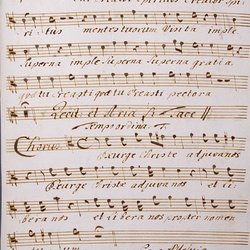 Creator Spi
ritus mentes tuorum Visita imple
Superna imple Superna gratia
quae tu Creasti quae tu Creasti pectora
Recit: et Aria Tace
Tempo ordina:
Chorus Exurge Christe adjuva nos
Exurge Christe adjuva nos et li
bera nos et libera nos propter nomen
tuum